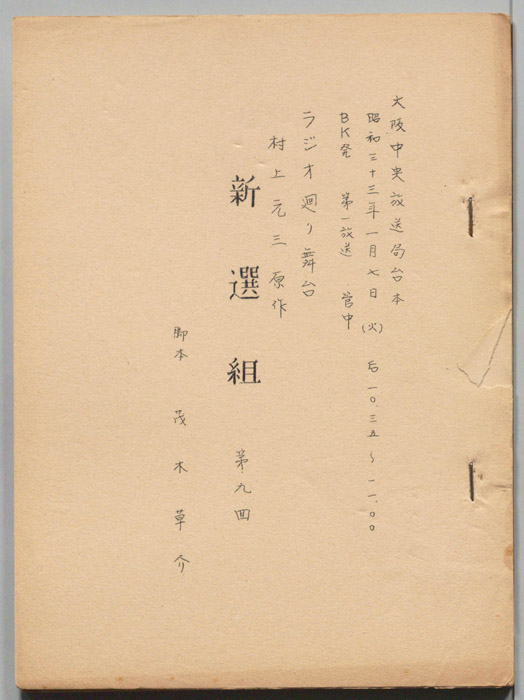 大阪中央放送局台本
昭和三十三年一月七日(火) 后一〇.三五〜一一.〇〇
BK発 第一放送 管中
ラジオ廻り舞台
村上元三原作
新選組 第九回
脚本 茂木草介